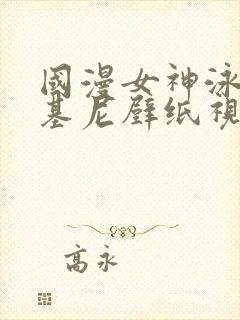 國漫女神泳
基尼壁纸視
高永